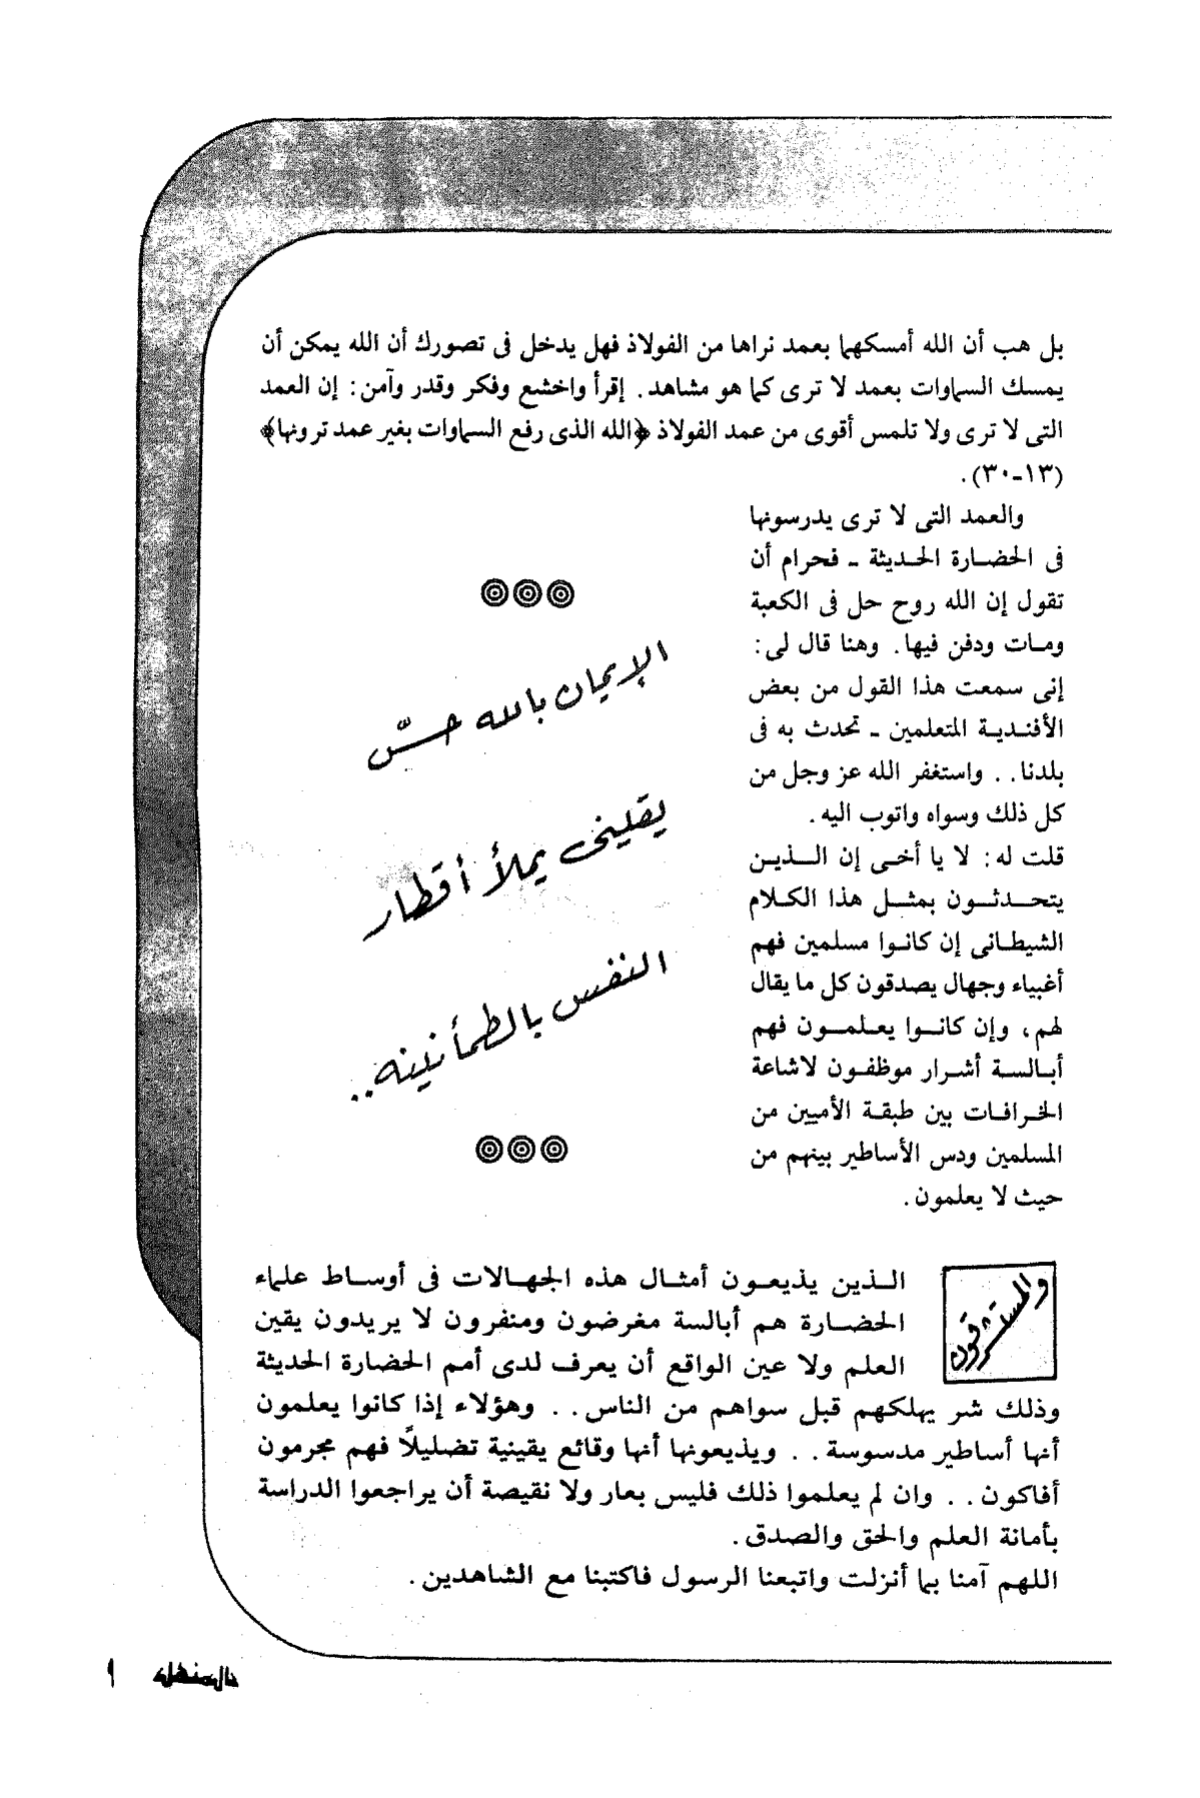 بل هب أن الله أمسكهما بعمد نراها من الفولاذ فهل يدخل فى تصورك أن الله يمكن أن
يمسك السماوات بعمد لا ترى كما هو مشاهد. إقرأ واخشع وفكر وقدر وآمن: إن العمد
التى لا ترى ولا تلمس أقوى من عمد الفولاذ ﴿الله الذى رفع السماوات بغير عمد ترونها﴾
(١٣-٣٠).
والعمد التى لا ترى يدرسونها
فى الحضارة الحديثة - فحرام أن
تقول إن الله روح حل فى الكعبة
ومات ودفن فيها. وهنا قال لى:
إنى سمعت هذا القول من بعض
الأفندية المتعلمين - تحدث به فى
بلدنا.. واستغفر الله عز وجل من
كل ذلك وسواه واتوب اليه.
قلت له: لا يا أخى إن الذين
يتحدثون بمثل هذا الكلام
الشيطانى إن كانوا مسلمين فهم
أغبياء وجهال يصدقون كل ما يقال
لهم، وإن كانوا يعلمون فهم
أبالسة أشرار موظفون لاشاعة
الخرافات بين طبقة الأميين من
المسلمين ودس الأساطير بينهم من
حيث لا يعلمون.
الإيمان بالله حسّ
يقينى يملأ أقطار
النفس بالطمأنينه..
والمستشرقون
الذين يذيعون أمثال هذه الجهالات فى أوساط علماء
الحضارة هم أبالسة مغرضون ومنفرون لا يريدون يقين
العلم ولا عين الواقع أن يعرف لدى أمم الحضارة الحديثة
وذلك شر يهلكهم قبل سواهم من الناس.. وهؤلاء إذا كانوا يعلمون
أنها أساطير مدسوسة.. ويذيعونها أنها وقائع يقينية تضليلاً فهم مجرمون
أفاكون.. وان لم يعلموا ذلك فليس بعار ولا نقيصة أن يراجعوا الدراسة
بأمانة العلم والحق والصدق.
اللهم آمنا بما أنزلت واتبعنا الرسول فاكتبنا مع الشاهدين.